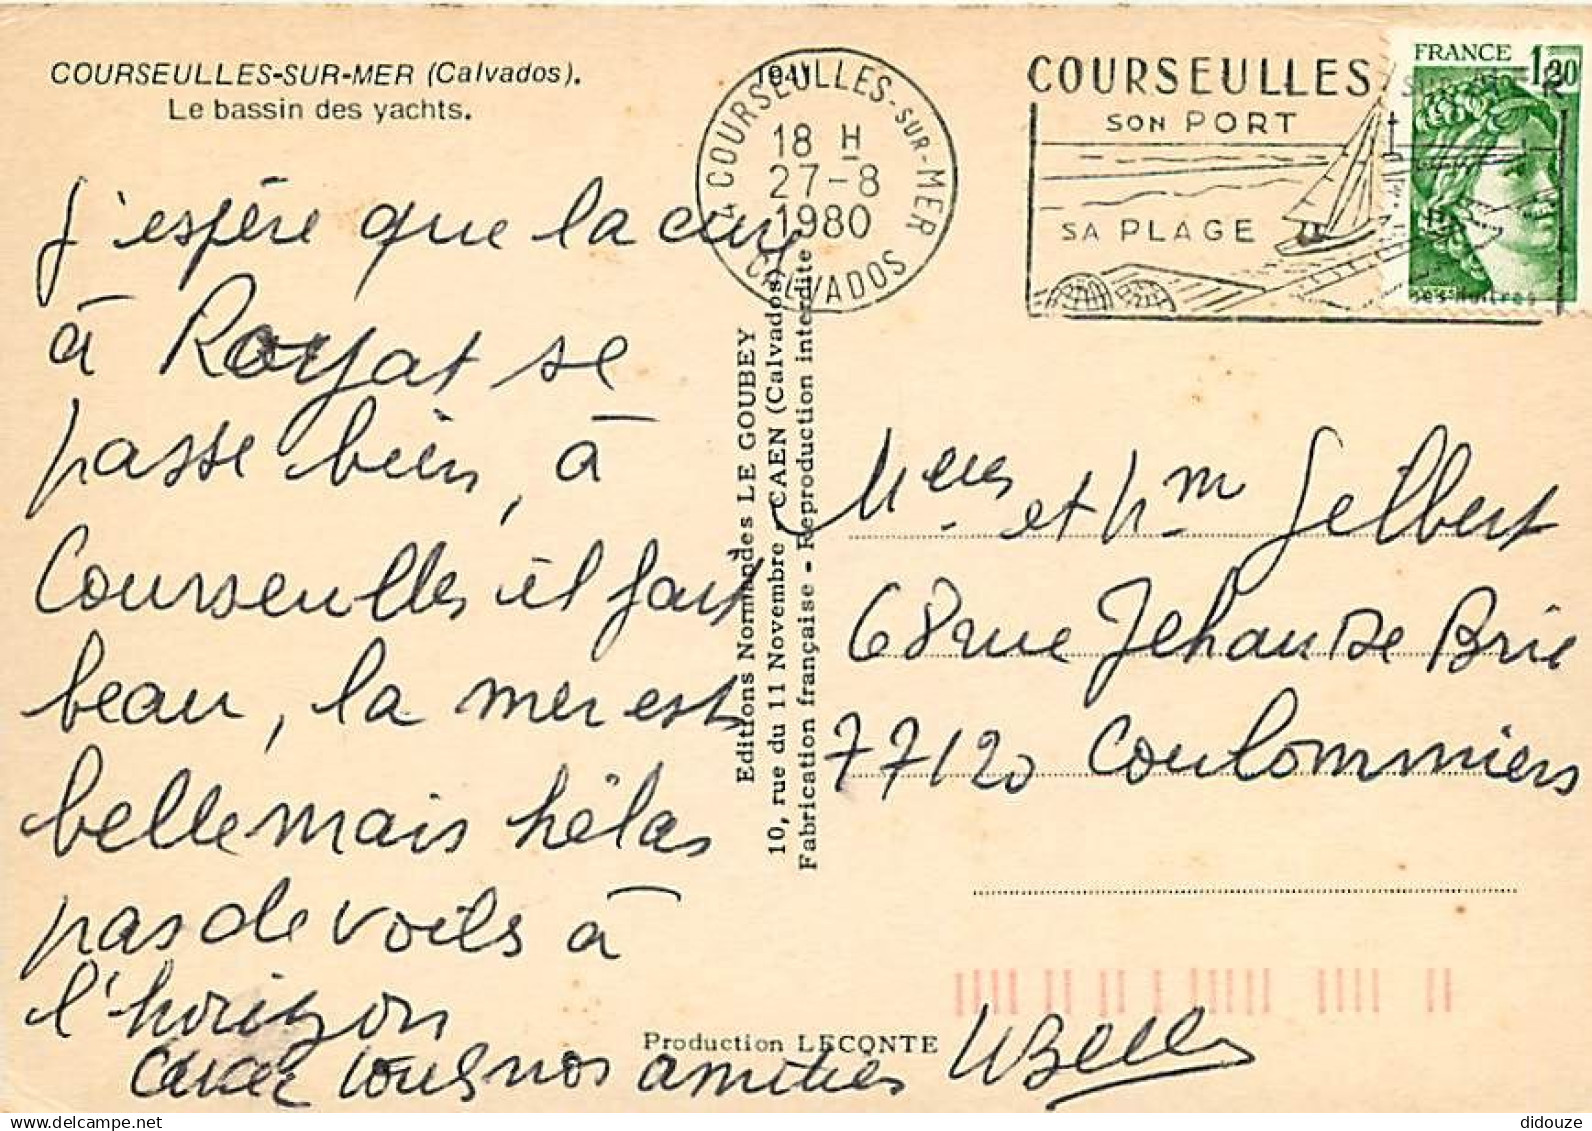 COURSEULLES-SUR-MER (Calvados).
Le bassin des yachts.
J'espère que la cure
à Royat se
passe bien, à
Courseulles il fait
beau, la mer est
belle mais hélas
pas de voils à
l'horizon
avec tous nos amitiés
Editions Normandes LE GOUBEY
10, rue du 11 Novembre - CAEN (Calvados)
Fabrication française - Reproduction interdite
Production LECONTE
14 COURSEULLES-SUR-MER
18 H
27-8
1980
CALVADOS
COURSEULLES
SON PORT
SA PLAGE
ses Huîtres
FRANCE 1,20
et Mm Gelbert
68 rue Jehan De Brie
77120 Coulommiers
didouze